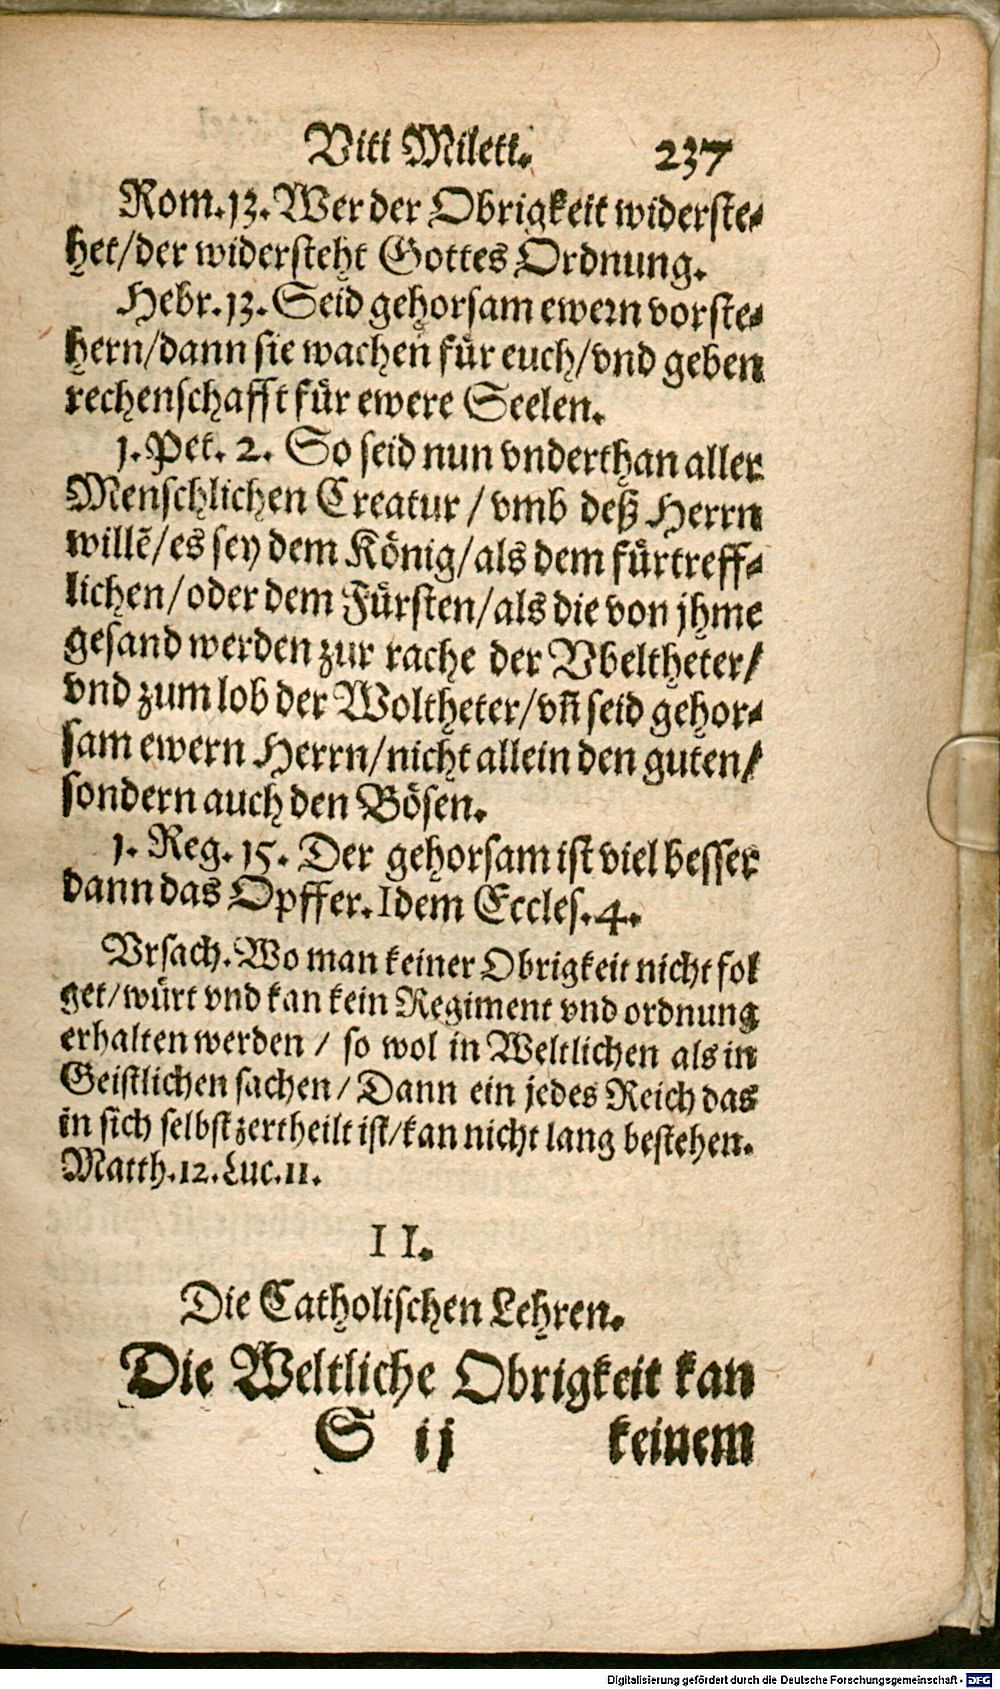 Viti Mileti. 237
Rom. 13. Wer der Obrigkeit widerste-
het/der widersteht Gottes Ordnung.
Hebr. 13. Seid gehorsam ewern vorste-
hern/dann sie wachen für euch/vnd geben
rechenschafft für ewere Seelen.
1. Pet. 2. So seid nun vnderthan aller
Menschlichen Creatur / vmb deß Herrn
willē/es sey dem König/als dem fürtreff-
lichen/oder dem Fürsten/als die von jhme
gesand werden zur rache der Vbeltheter/
vnd zum lob der Woltheter/vñ seid gehor-
sam ewern Herrn/nicht allein den guten/
sondern auch den Bösen.
1. Reg. 15. Der gehorsam ist viel besser
dann das Opffer. Idem Eccles. 4.
Vrsach. Wo man keiner Obrigkeit nicht fol
get/würt vnd kan kein Regiment vnd ordnung
erhalten werden / so wol in Weltlichen als in
Geistlichen sachen/ Dann ein jedes Reich das
in sich selbst zertheilt ist/kan nicht lang bestehen.
Matth. 12. Luc. 11.
II.
Die Catholischen Lehren.
Die Weltliche Obrigkeit kan
S ij keinem
Digitalisierung gefördert durch die Deutsche Forschungsgemeinschaft - DFG